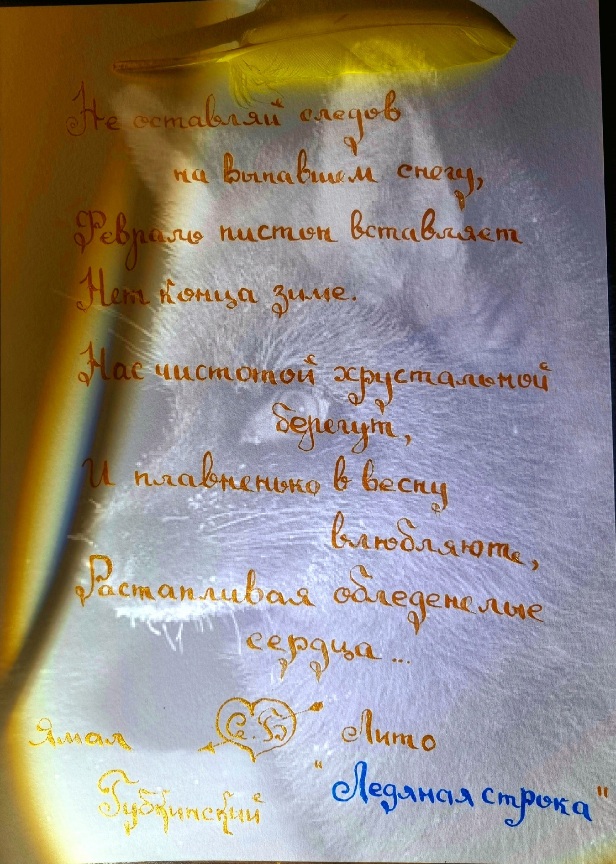 Не оставляй следов
на выпавшем снегу,
Февраль пистон вставляет
Нет конца зиме.
Нас чистотой хрустальной
берегут,
И плавненько в весну
влюбляют,
Растапливая обледенелые
сердца...
Ямал С.Б Лито
Губкинский "Ледяная строка"